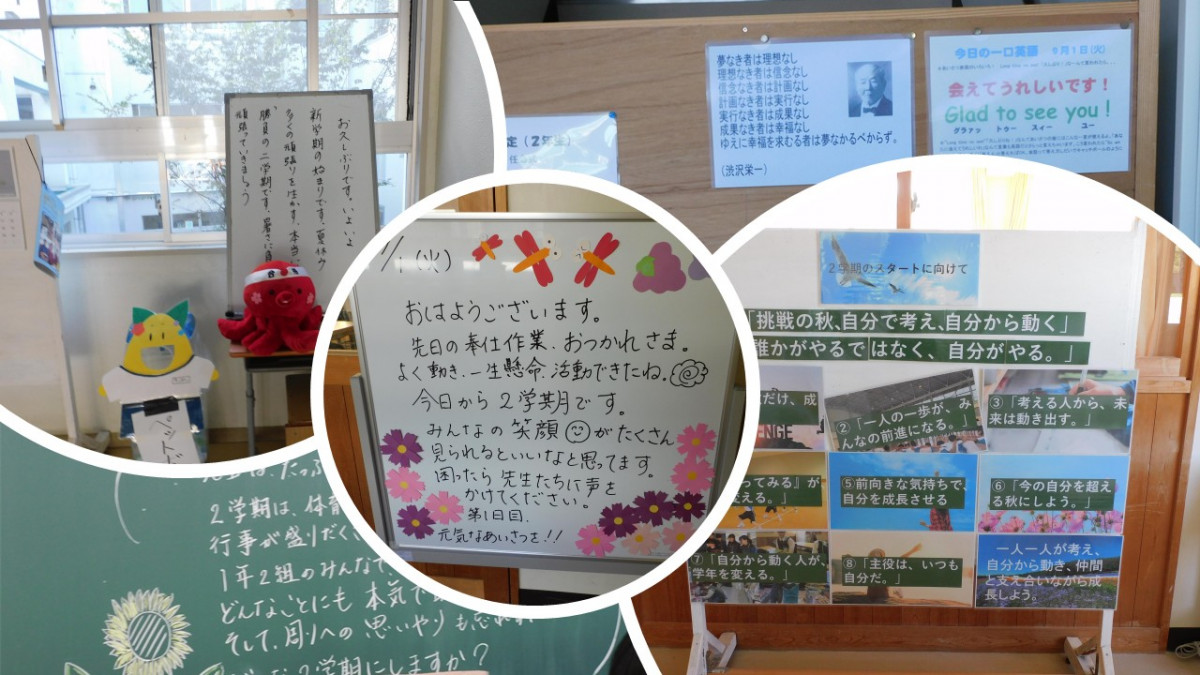 お久しぶりです。いよいよ
新学期の始まりです。夏休み
多くの頑張りを生かす、本当に
勝負の二学期です。暑さに
頑張っていきましょう
ペットボ
定(2年生)
任
夢なき者は理想なし
理想なき者は信念なし
信念なき者は計画なし
計画なき者は実行なし
実行なき者は成果なし
成果なき者は幸福なし
ゆえに幸福を求むる者は夢なかるべからず。
(渋沢栄一)
今日の一口英語 9月1日(火)
会えてうれしいです!
Glad to see you!
グラァッ トゥー スィー ユー
/1(火)
おはようございます。
先日の奉仕作業、おつかれさま。
よく動き、一生懸命、活動できたね。
今日から2学期です。
みんなの笑顔がたくさん
見られるといいなと思ってます。
困ったら先生たちに声を
かけてください。
第1日目.
元気なあいさつを!!
2学期のスタートに向けて
「挑戦の秋、自分で考え、自分から動く」
誰かがやるではなく、自分がやる。」
だけ、成
ENGE
②「一人の一歩が、み
んなの前進になる。」
③「考える人から、未
来は動き出す。」
ってみる』が
変える。」
⑤前向きな気持ちで、
自分を成長させる
⑥「今の自分を超え
る秋にしよう。」
⑦「自分から動く人が、
学年を変える。」
⑧「主役は、いつも
自分だ。」
一人一人が考え、
自分から動き、仲間
と支え合いながら成
長しよう。
2学期は、体育
行事が盛りだくさ
1年2組のみんなで
どんなことにも本気で
そして、周りへの思いやりも忘れ
な2学期にしますか?